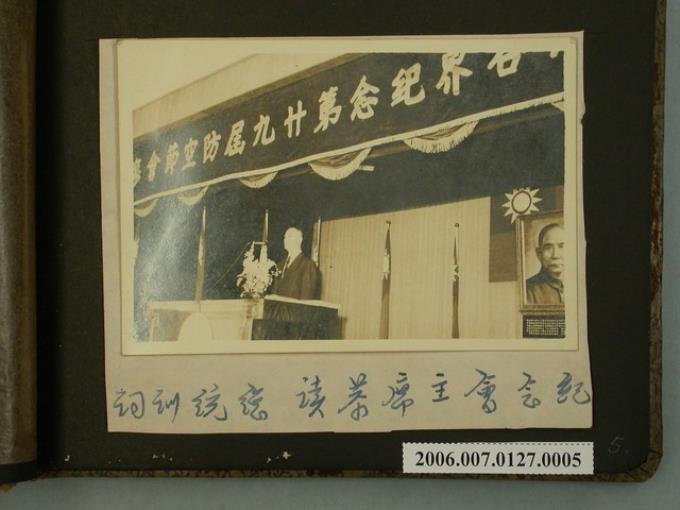 各界紀念第廿九屆防空節會
紀念會主席恭讀總統訓詞
2006.007.0127.0005
5.